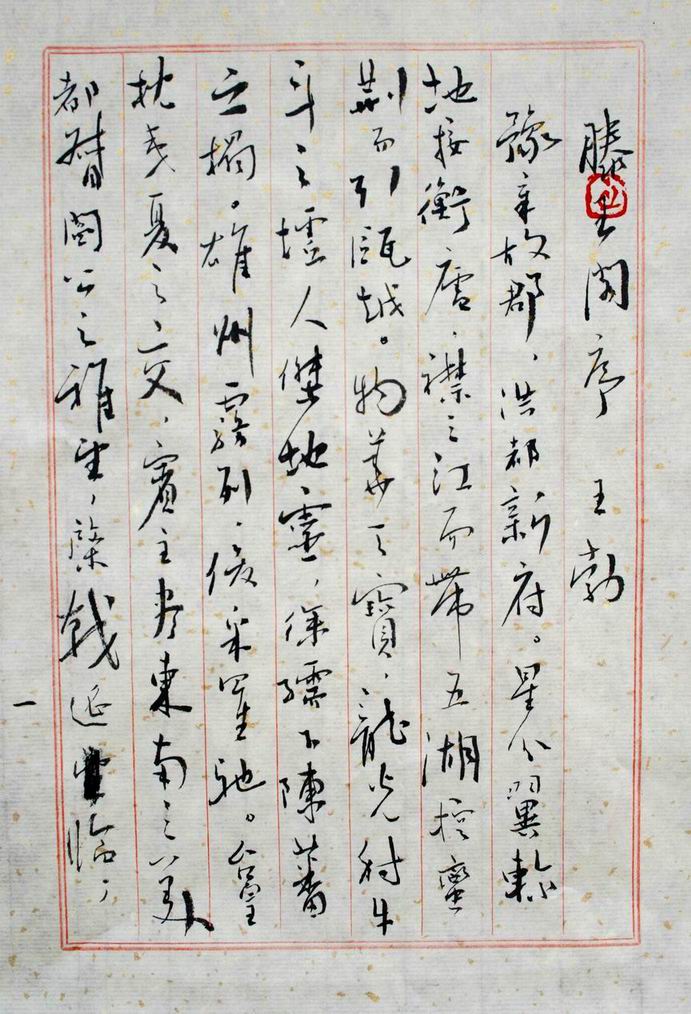 滕王閣序 王勃
豫章故郡，洪都新府。星分翼軫
地接衡廬，襟三江而帶五湖控蠻
荆而引甌越。物華天寶，龍光射牛
斗之墟人傑地靈，徐孺下陳蕃
之榻。雄州霧列，俊采星馳。台隍
枕夷夏之交，賓主尽東南之美
都督閻公之雅望，棨戟遥臨，
一